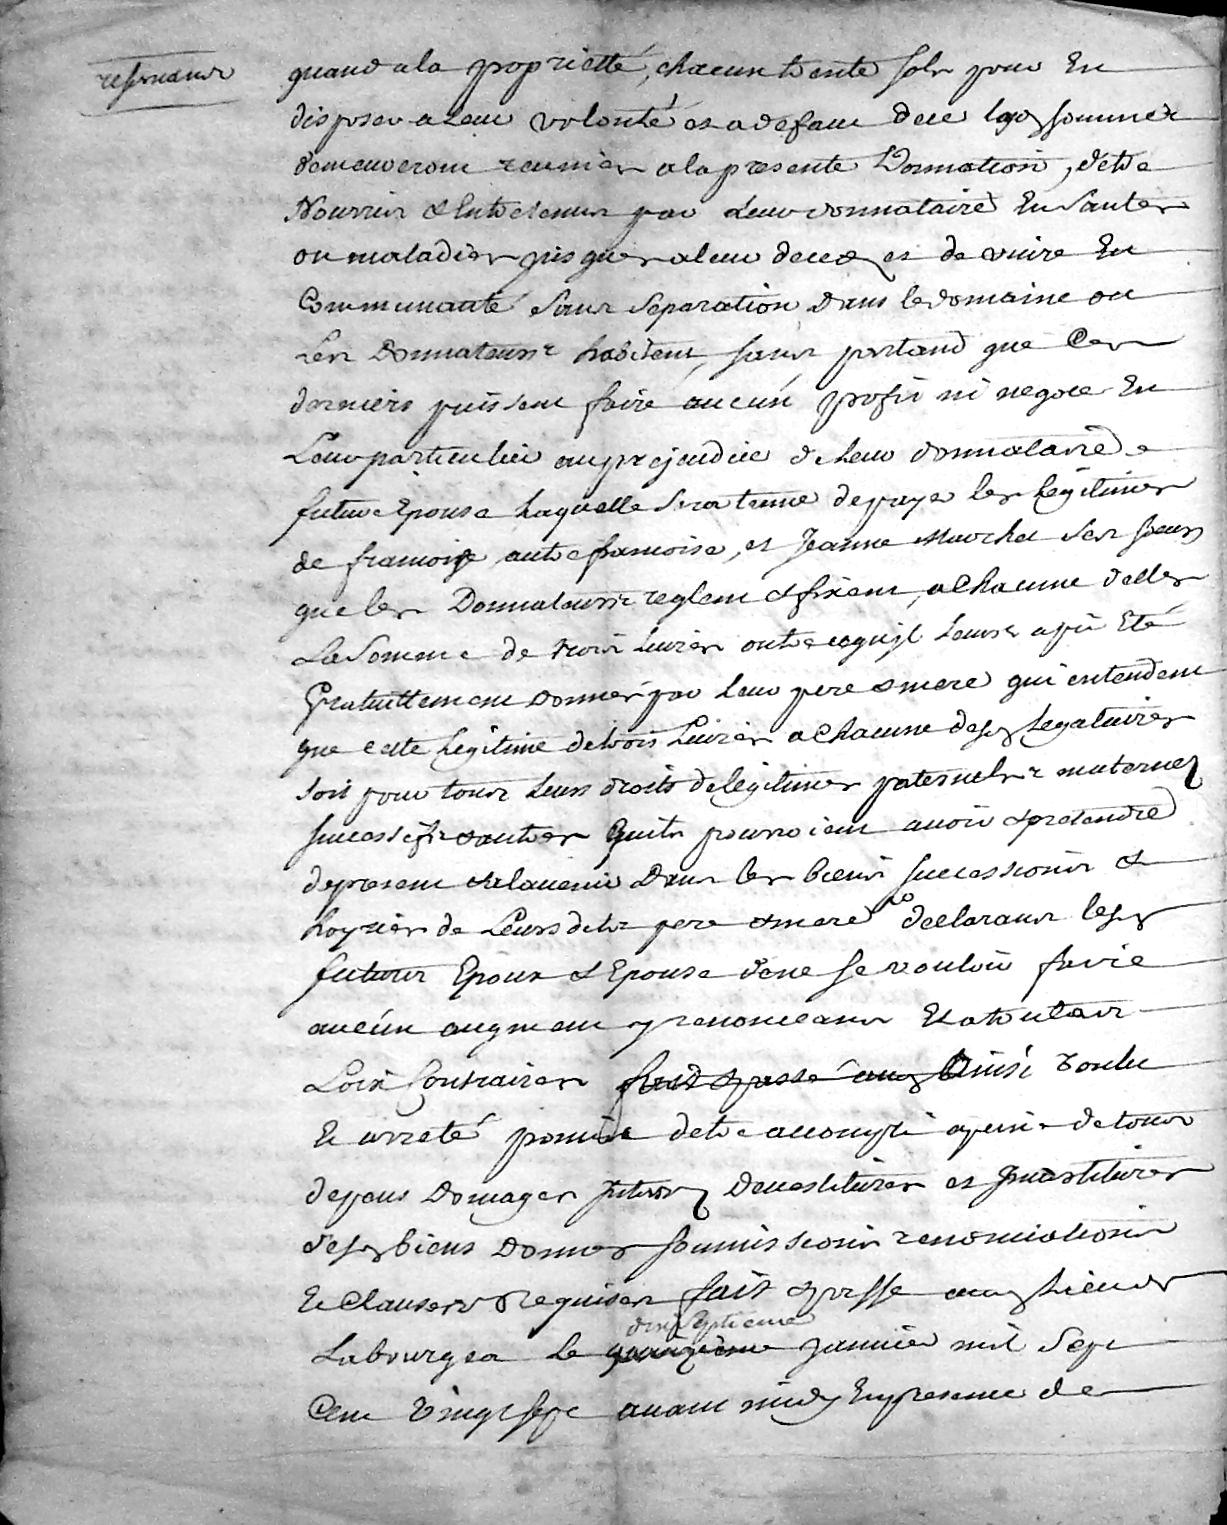 reservants
quand a la proprietté, chacun trente sols pour En
disposer a Leur volonté et a defaut de ce lesd sommes
demeureront reunies a la presente Donnation, d'etre
Nourris & Entretenus par Leur donnataire En Santes
ou maladies jusques a leur deces et de vivre En
Communauté Sans Separation Dans le domaine ou
Les Donnateurs habitent, sans portand que Ces
derniers puissent faire aucun profit ni negoce En
Leur particulier au prejeudice de Leur donnataire
future Epouse Laquelle Sera tenue de payer les Legitimes
de francoise autre francoise, et Jeanne Marchet Ses soeurs
que les Donnateurs reglent & fixent, a Chacune d'elles
La Somme de trois Livres outre ce qu'jl Leurs a eté
Gratuittement Donnes par leur pere & mere qui entendent
que cette Legitime de trois Livres a Chacune desd Legataires
soit pour tous Leurs droits de legitimes paternels & maternels
successifs & autres Quils pourroient avoir & pretendre
de present & a lavenir Dans les biens successions &
hoyries de Leurs dits pere & mere declarans lesd
futurs Epoux & Epouse de ne se vouloir faire
aucun augment y renonceans Et a toutes
Loix Contraires fait & passé aud Ainsi voulu
Et arreté promis detre accompli a peine de tous
depens Domages Devestitures et Jnvestitures
desd biens Donnes soumissions renonciations
Et Clauses Requises fait & passe aud Lieu de
Labourgea le quinzieme dix septieme janvier mil Sept
Cent vingt sept avant midy En presence de